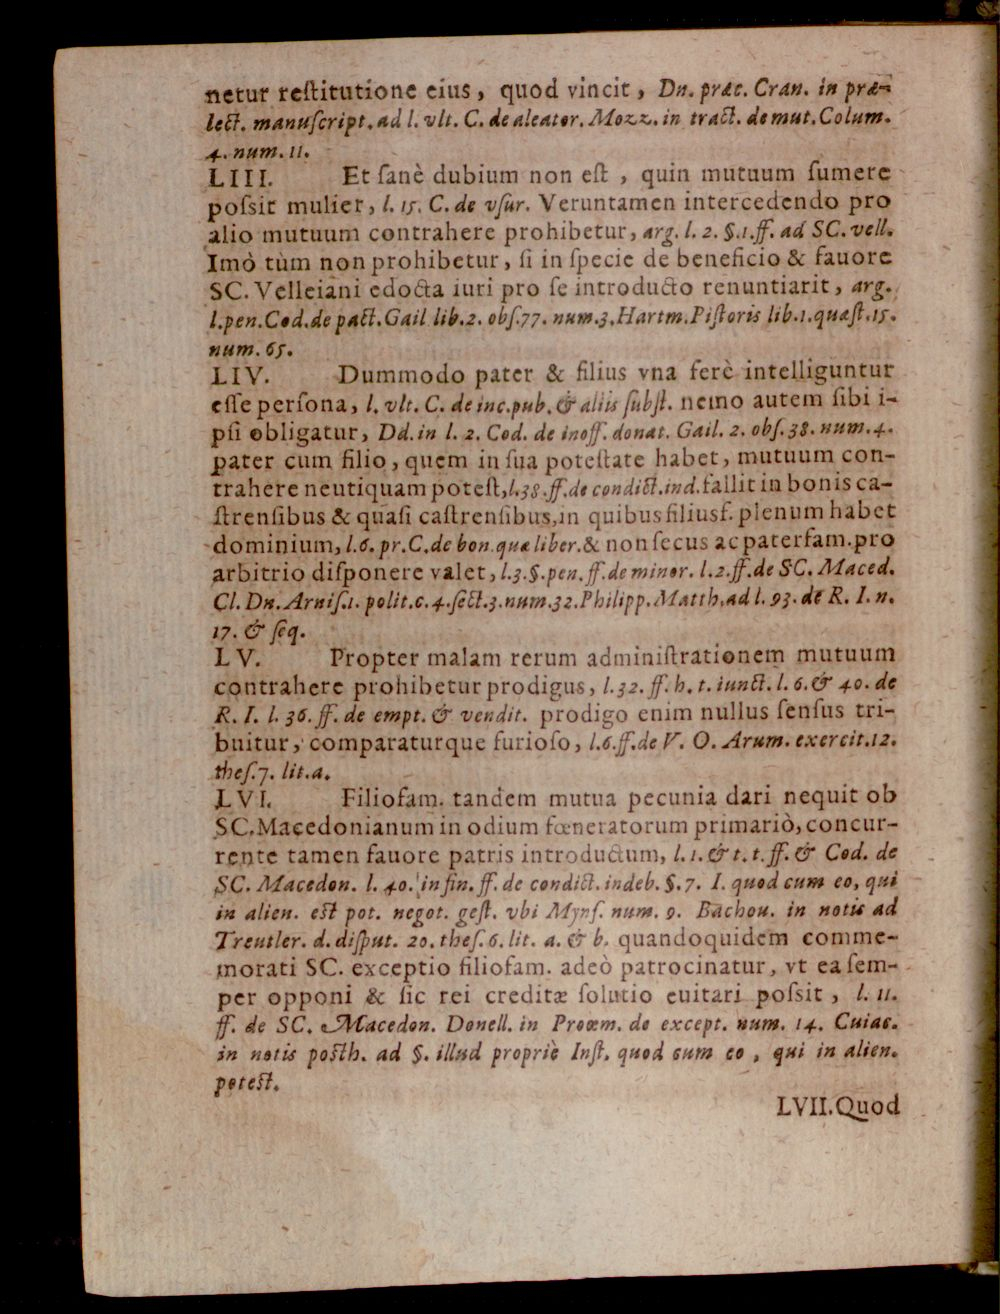 netur reſtitutione eius, quod vincit, Dn. præc. Cran. in præ-
lect. manuſcript. ad l. vlt. C. de aleator. Mozz. in tract. de mut. Colum.
4. num. 11.
LIII. Et ſanè dubium non eſt, quin mutuum ſumere
poſsit mulier, l. 15. C. de vſur. Veruntamen intercedendo pro
alio mutuum contrahere prohibetur, arg. l. 2. §.1. ff. ad SC. vell.
Imò tùm non prohibetur, ſi in ſpecie de beneficio & fauore
SC. Velleiani edocta iuri pro ſe introducto renuntiarit, arg.
l. pen. Cod. de pact. Gail lib. 2. obſ. 77. num. 3. Hartm. Piſtoris lib. 1. quæſt. 15.
num. 65.
LIV. Dummodo pater & filius vna ferè intelliguntur
eſſe perſona, l. vlt. C. de inc. pub. & aliis ſubſt. nemo autem ſibi i-
pſi obligatur, Dd. in l. 2. Cod. de inoff. donat. Gail. 2. obſ. 38. num. 4.
pater cum filio, quem in ſua poteſtate habet, mutuum con-
trahere neutiquam poteſt, l. 38. ff. de condict. ind. fallit in bonis ca-
ſtrenſibus & quaſi caſtrenſibus, in quibus filiusf. plenum habet
dominium, l. 6. pr. C. de bon. quæ liber. & non ſecus ac paterfam. pro
arbitrio diſponere valet, l. 3. §. pen. ff. de minor. l. 2. ff. de SC. Maced.
Cl. Dn. Arniſ. 1. polit. c. 4. ſect. 3. num. 32. Philipp. Matth. ad l. 93. de R. I. n.
17. & ſeq.
LV. Propter malam rerum adminiſtrationem mutuum
contrahere prohibetur prodigus, l. 32. ff. h. t. iunct. l. 6. & 40. de
R. I. l. 36. ff. de empt. & vendit. prodigo enim nullus ſenſus tri-
buitur, comparaturque furioſo, l. 6. ff. de V. O. Arum. exercit. 12.
theſ. 7. lit. a.
LVI. Filiofam. tandem mutua pecunia dari nequit ob
SC. Macedonianum in odium fœneratorum primariò, concur-
rente tamen fauore patris introductum, l. 1. & t. t. ff. & Cod. de
SC. Macedon. l. 40. in fin. ff. de condict. indeb. §. 7. I. quod cum eo, qui
in alien. eſt pot. negot. geſt. vbi Mynſ. num. 9. Bachou. in notis ad
Treutler. d. diſput. 20. theſ. 6. lit. a. & b. quandoquidem comme-
morati SC. exceptio filiofam. adeò patrocinatur, vt ea ſem-
per opponi & ſic rei creditæ ſolutio euitari poſsit, l. 11.
ff. de SC. Macedon. Donell. in Proœm. de except. num. 14. Cuiac.
in notis poſth. ad §. illud propriè Inſt. quod cum eo, qui in alien.
poteſt.
LVII. Quod